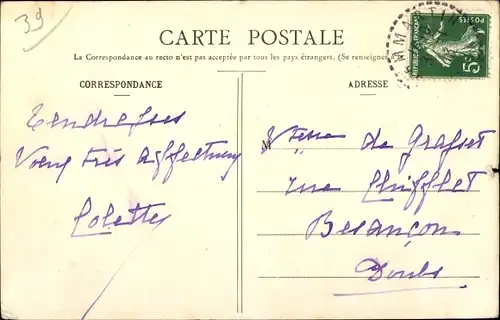 39
CARTE POSTALE
La Correspondance au recto n'est pas acceptée par tous les pays étrangers. (Se renseigner
CORRESPONDANCE
ADRESSE
Tendresses
Voeux très affectueux
Colette
M
Vtesse de Grasset
rue Chifflet
Besançon
Doubs
REPUBLIQUE FRANÇAISE
POSTES
5c